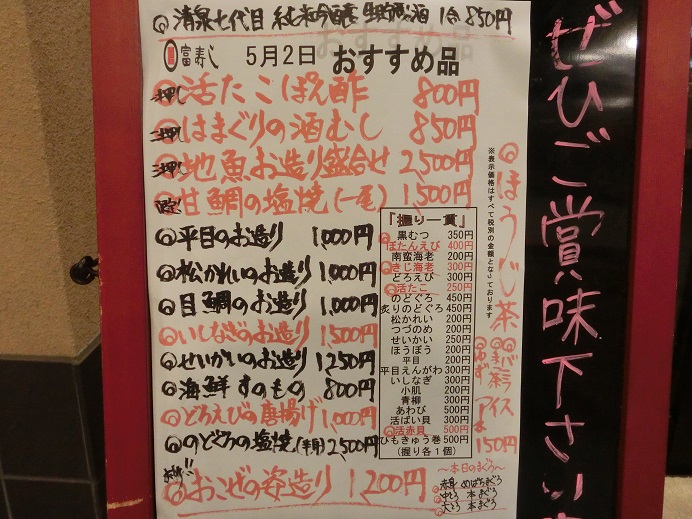 清泉七代目 純米吟醸 生貯蔵酒 1合 850円
富寿し 5月2日 おすすめ品
一押し 活たこぽん酢 800円
二押し はまぐりの酒むし 850円
三押し 地魚お造り盛合せ 2,500円
甘鯛の塩焼(一尾) 1,500円
平目のお造り 1,000円
松かれいのお造り 1,000円
目鯛のお造り 1,000円
いしなぎのお造り 1,500円
せいかいのお造り 1,250円
海鮮すのもの 800円
どろえびの唐揚げ 1,000円
のどぐろの塩焼(半身) 2,500円
おこぜの姿造り 1,200円
『握り一貫』
黒むつ 350円
ぼたんえび 400円
南蛮海老 200円
きじ海老 300円
どろえび 300円
活たこ 250円
のどぐろ 450円
炙りのどぐろ 450円
松かれい 200円
つづのめ 200円
せいかい 250円
ほうぼう 200円
平目 200円
平目えんがわ 300円
いしなぎ 300円
小肌 200円
青柳 300円
あわび 500円
活ばい貝 300円
活赤貝 500円
ひもきゅう巻 500円
(握り各1個)
※表示価格はすべて税別の金額となっております
ほうじ茶
バニラ
抹茶
ゆず
アイス
150円
~本日のまぐろ~
赤身 めばちまぐろ
中とろ 本まぐろ
大とろ 本まぐろ
ぜひご賞味下さい